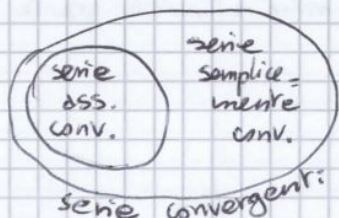 serie
ass.
conv.
serie
semplice=
mente
conv.
serie convergenti